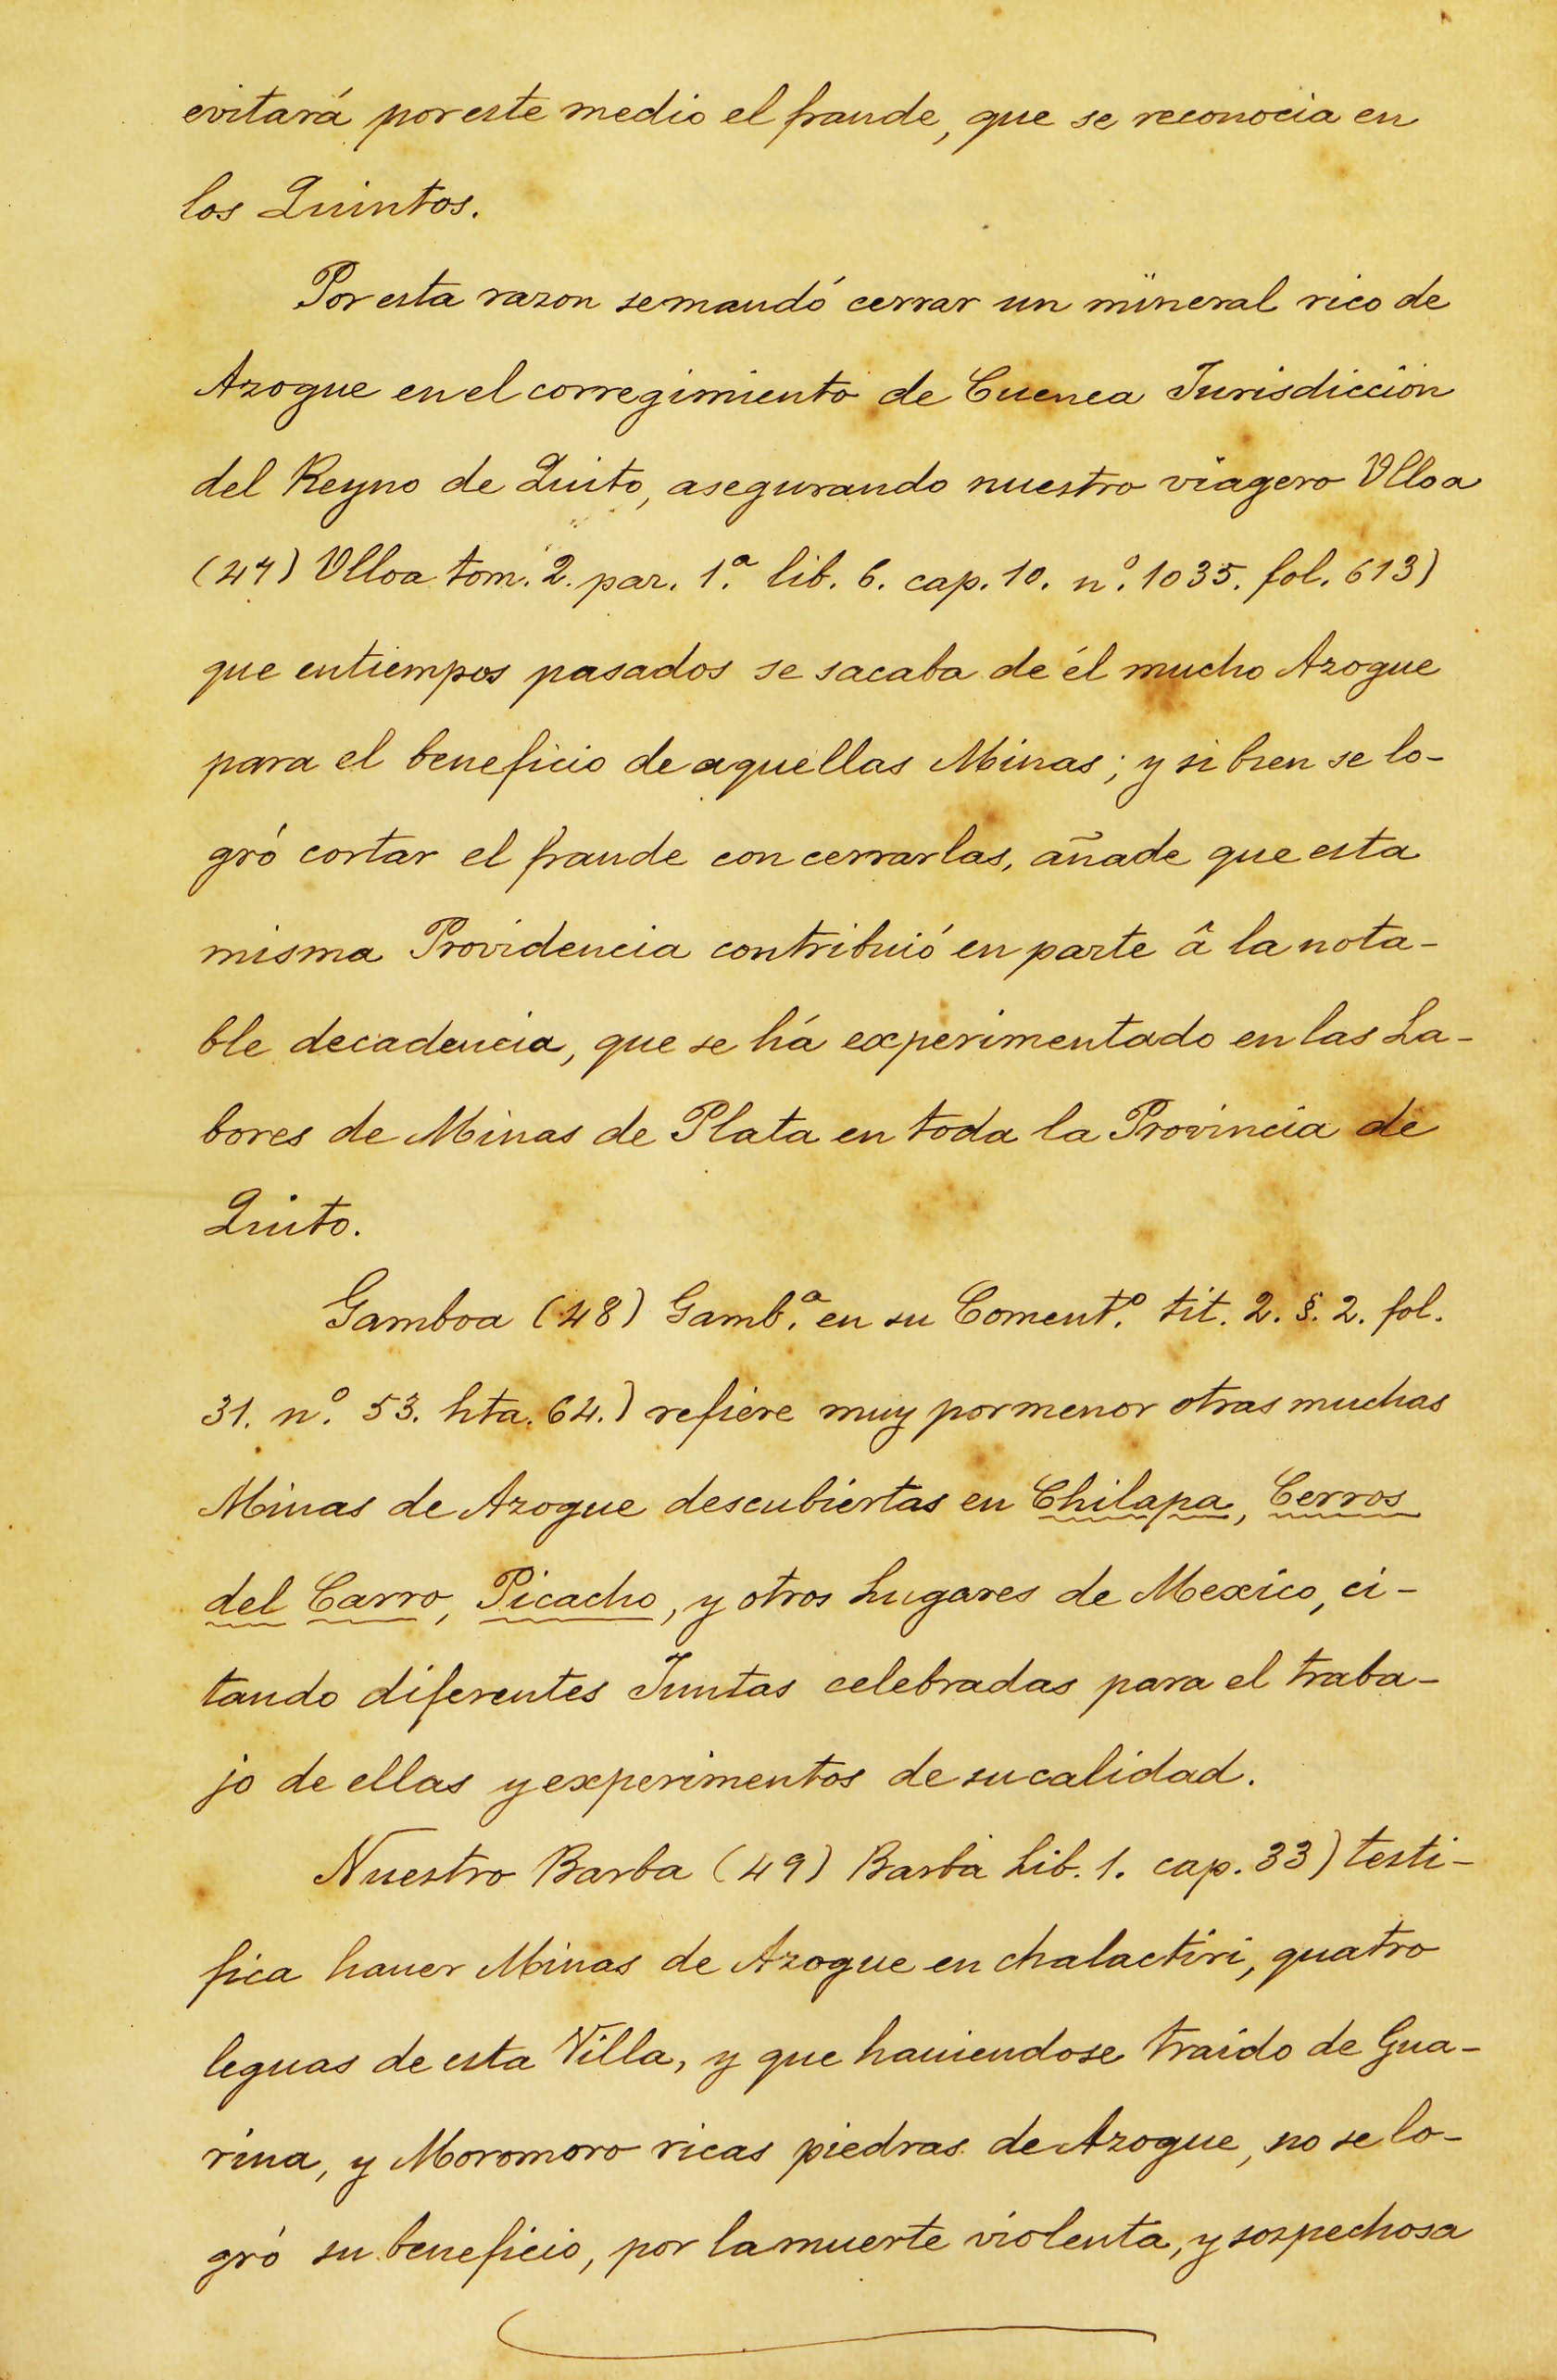 evitará por este medio el fraude, que se reconocia en
los Quintos.
Por esta razon se mandó cerrar un mineral rico de
Azogue en el corregimiento de Cuenca Jurisdiccion
del Reyno de Quito, asegurando nuestro viagero Vlloa
(47) Vlloa tom. 2. par. 1.ª lib. 6. cap. 10. nº. 1035. fol. 613)
que entiempos pasados se sacaba de él mucho Azogue
para el beneficio de aquellas Minas; y si bien se lo-
gró cortar el fraude con cerrarlas, añade que esta
misma Providencia contribuió en parte â la nota-
ble decadencia, que se há experimentado en las La-
bores de Minas de Plata en toda la Provincia de
Quito.
Gamboa (48) Gamb.ª en su Coment.º tit. 2. §. 2. fol.
31. nº. 53. hta. 64.) refiere muy por menor otras muchas
Minas de Azogue descubiertas en Chilapa, Cerros
del Carro, Picacho, y otros Lugares de Mexico, ci-
tando diferentes Juntas celebradas para el traba-
jo de ellas y experimentos de su calidad.
Nuestro Barba (49) Barba Lib. 1. cap. 33) testi-
fica hauer Minas de Azogue en chalactiri, quatro
leguas de esta Villa, y que hauiendose traido de Gua-
rina, y Moromoro ricas piedras de Azogue, no se lo-
gró su beneficio, por la muerte violenta, y sospechosa